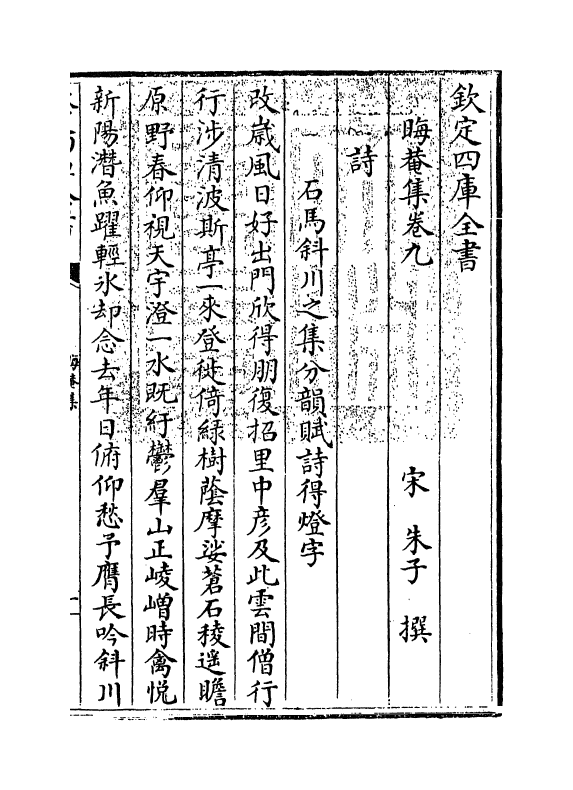 欽定四庫全書
晦菴集卷九
宋 朱子 撰
詩
石馬斜川之集分韻賦詩得燈字
改歲風日好出門欣得朋復招里中彦及此雲間僧行
行涉清波斯亭一來登徙倚緑樹蔭摩娑蒼石稜遥瞻
原野春仰視天宇澄一水既紆鬱羣山正崚嶒時禽悦
新陽潛魚躍輕氷却念去年日俯仰愁予膺長吟斜川
晦菴集
一